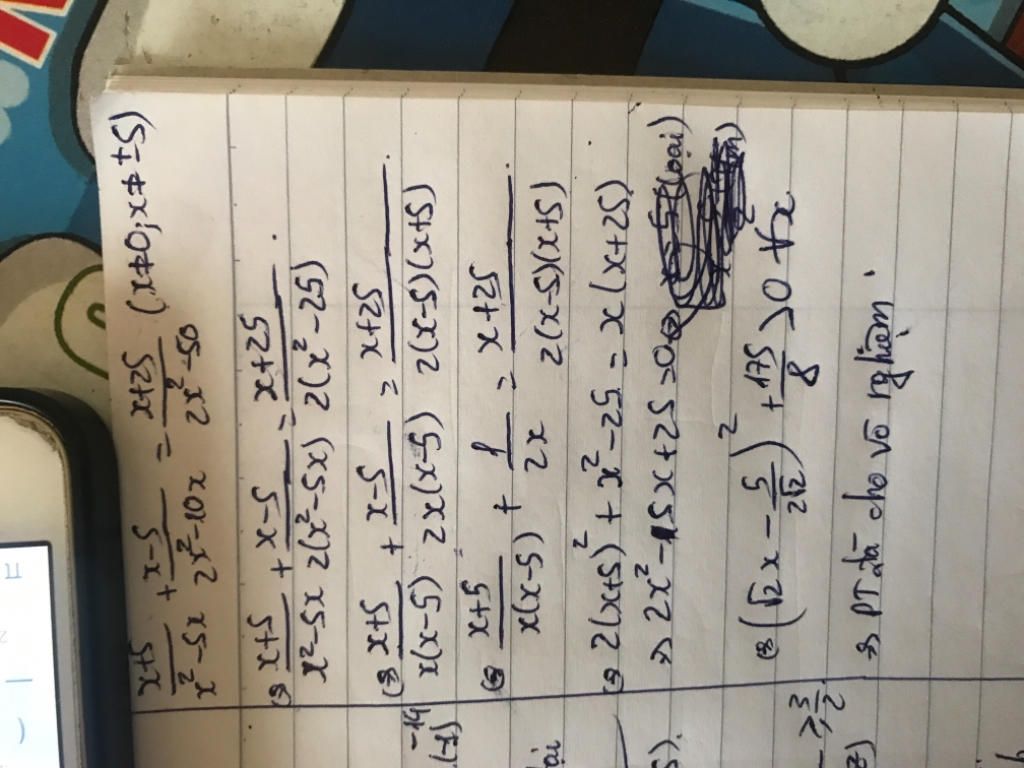 x+5/x²-5x + x-5/2x²-10x = x+25/2x²-50 (x≠0; x≠±5)
⇔ x+5/x²-5x + x-5/2(x²-5x) = x+25/2(x²-25).
⇔ x+5/x(x-5) + x-5/2x(x-5) = x+25/2(x-5)(x+5).
⇔ x+5/x(x-5) + 1/2x = x+25/2(x-5)(x+5).
⇔ 2(x+5)² + x²-25 = x(x+25)
⇒ 2x²-5x+25=0
⇔ (√2x - 5/2√2)² + 175/8 > 0 ∀x
⇒ PT đã cho vô nghiệm.
-14
(-1)
≥ 3/2